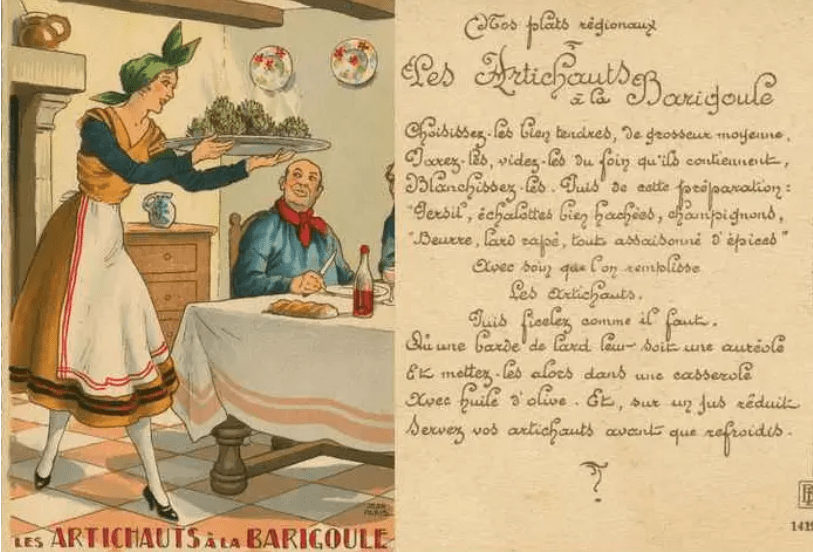 LES ARTICHAUTS À LA BARIGOULE
JEAN
PARIS
Nos plats régionaux
Les Artichauts
à la Barigoule
Choisissez-les bien tendres, de grosseur moyenne,
Parez-lès, videz-les du foin qu'ils contiennent,
Blanchissez-lès. Puis de cette préparation :
"Persil, échalottes bien hachées, champignons,
"Beurre, lard rapé, tout assaisonné d'épices"
Avec soin que l'on remplisse
Les Artichauts.
Puis ficelez comme il faut.
Qu'une barde de lard leur soit une auréole
Et mettez-les alors dans une casserole
Avec huile d'olive. Et, sur un jus réduit
Servez vos artichauts avant que refroidis.